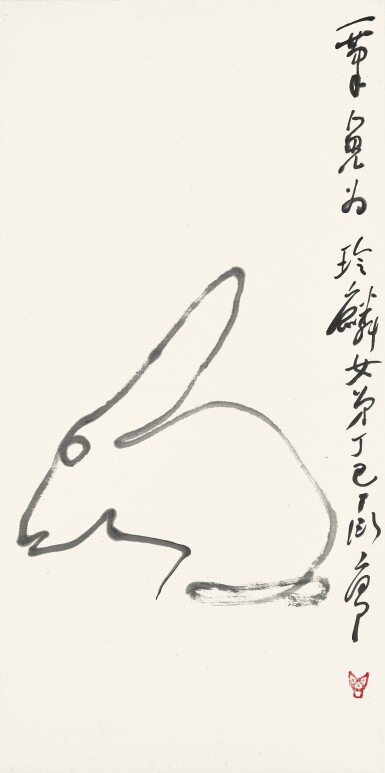 一筆兔为玲麟女弟丁巳丁衍庸